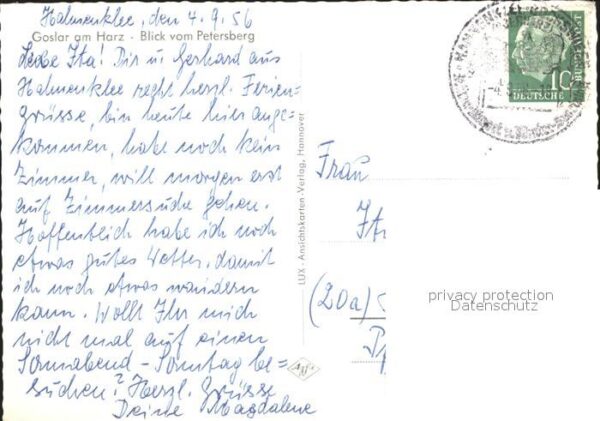 Hahnenklee, den 4.9.56
Goslar am Harz · Blick vom Petersberg
Liebe Ita! Dir u. Gerhard aus
Hahnenklee recht herzl. Ferien-
grüsse, bin heute hier ange-
kommen, habe noch kein
Zimmer, will morgen erst
auf Zimmersuche gehen.
Hoffentlich habe ich noch
etwas gutes Wetter, damit
ich noch etwas wandern
kann. Wollt Ihr mich
nicht mal auf einen
Sonnabend-Sonntag be=
suchen? Herzl. Grüsse
Deine Magdalene
LUX - Ansichtskarten-Verlag, Hannover
Frau
Ita
(20a)
10
DEUTSCHE
BUNDESPOST
HAHNENKLEE
privacy protection
Datenschutz